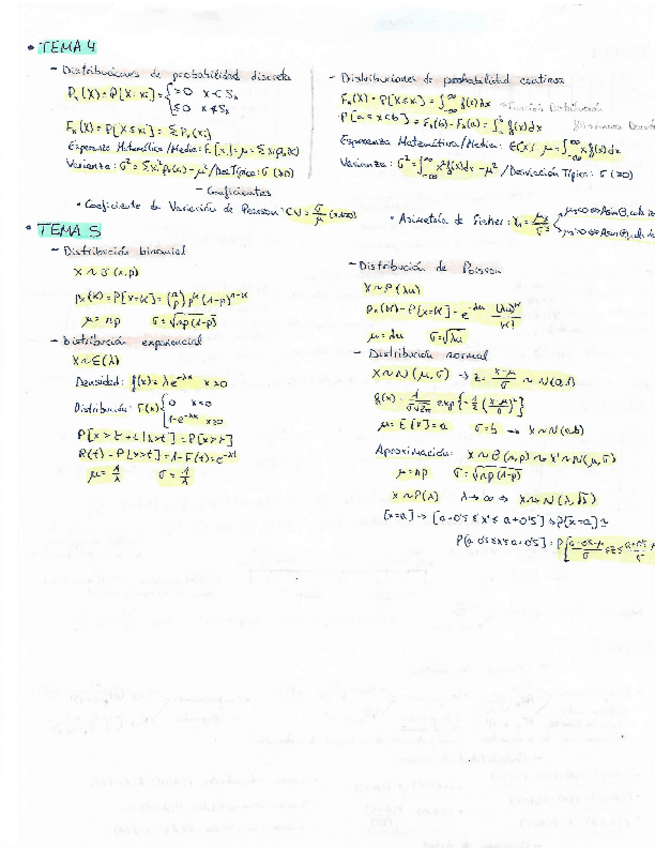 • TEMA 4
- Distribuciones de probabilidad discreta
Pₓ(X) = P[X=xᵢ] = { >0 x ∈ Sₓ
≤0 x ∉ Sₓ
Fₓ(X) = P[X≤xᵢ] = Σ Pₓ(xᵢ)
Esperanza Matemática/Media: E[x] = μ = Σ xᵢpₓ(x)
Varianza: σ² = Σxᵢ²pₓ(x) - μ² / Des Típica: σ (≥0)
- Distribuciones de probabilidad continua
Fₓ(X) = P[X≤x] = ∫ f(x)dx → Función Distribución
P[a<x<b] = Fₓ(b) - Fₓ(a) = ∫ f(x)dx
Esperanza Matemática/Media: E[X] = μ = ∫ x f(x) dx
Varianza: σ² = ∫ x² f(x)dx - μ² / Desviación Típica: σ (≥0)
- Coeficientes
• Coeficiente de Variación de Pearson: CV = σ/μ
• Asimetría de Fisher:
• TEMA 5
- Distribución binomial
X ~ B(n,p)
pₓ(K) = P[X=K] = (n K) pᴷ (1-p)ⁿ⁻ᴷ
μ = np σ = √np(1-p)
- Distribución exponencial
X ~ E(λ)
Densidad: f(x) = λe^-λx x>0
Distribución: F(x) { 0 x<0
1-e^-λx x≥0
P[X>t+s|X>t] = P[X>s]
R(t) = P[X>t] = 1-F(t) = e^-λt
μ = 1/λ σ = 1/λ
- Distribución de Poisson
X ~ P(λu)
Pₓ(K) = P[X=K] = e^-λu (λu)ᴷ/K!
μ = λu σ = √λu
- Distribución normal
X ~ N(μ,σ) → z = (x-μ)/σ ~ N(0,1)
f(x) = 1/(σ√2π) exp{-1/2 ((x-μ)/σ)²}
μ = E[X] = a σ = b → X ~ N(a,b)
Aproximación: X ~ B(n,p) ~ X' ~ N(μ,σ)
μ = np σ = √np(1-p)
X ~ P(λ) λ → ∞ ⇒ X ~ N(λ,√λ)
[X=a] → [a-0'5 ≤ X' ≤ a+0'5] → P[X=a] ≃
P[a-0'5 ≤ X' ≤ a+0'5] = P[(a-0'5-μ)/σ ≤ Z ≤ (a+0'5-μ)/σ